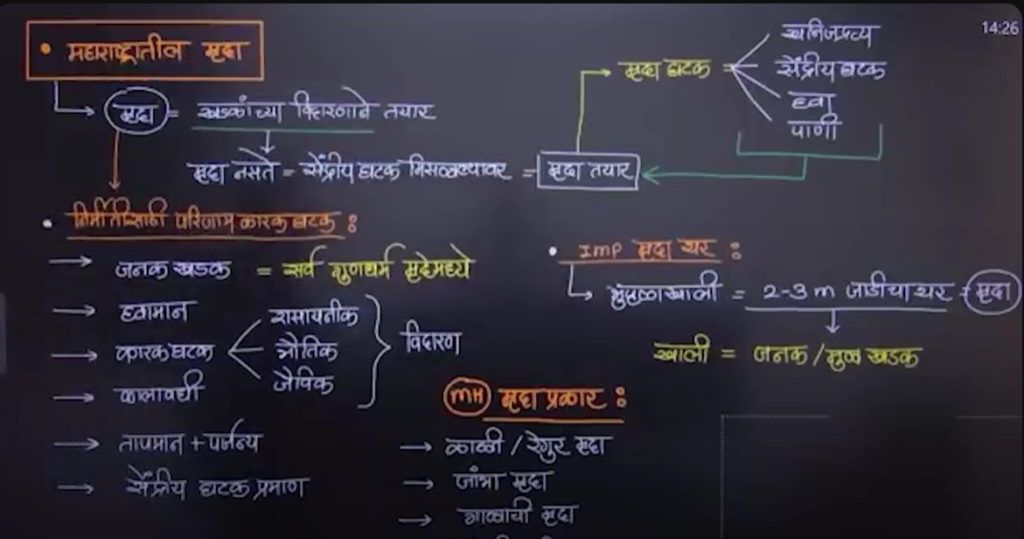 14:26
• महाराष्ट्रातील मृदा
मृदा = खडकांच्या विदारणाने तयार
मृदा नसते = सेंद्रीय घटक मिसळल्यावर = मृदा तयार
मृदा घटक =
खनिजद्रव्य
सेंद्रीय घटक
हवा
पाणी
• निर्मितीसाठी परिणाम कारक घटक :
→ जनक खडक = सर्व गुणधर्म मृदेमध्ये
→ हवामान
→ कारक घटक
रासायनीक
भौतिक
जैविक
विदारण
→ कालावधी
→ तापमान + पर्जन्य
→ सेंद्रीय घटक प्रमाण
• IMP मृदा थर :
भुपृष्ठाखाली = 2-3 m जाडीचा थर = मृदा
खाली = जनक / मुळ खडक
MH मृदा प्रकार :
→ काळी / रेगुर मृदा
→ जांभा मृदा
→ गाळाची मृदा